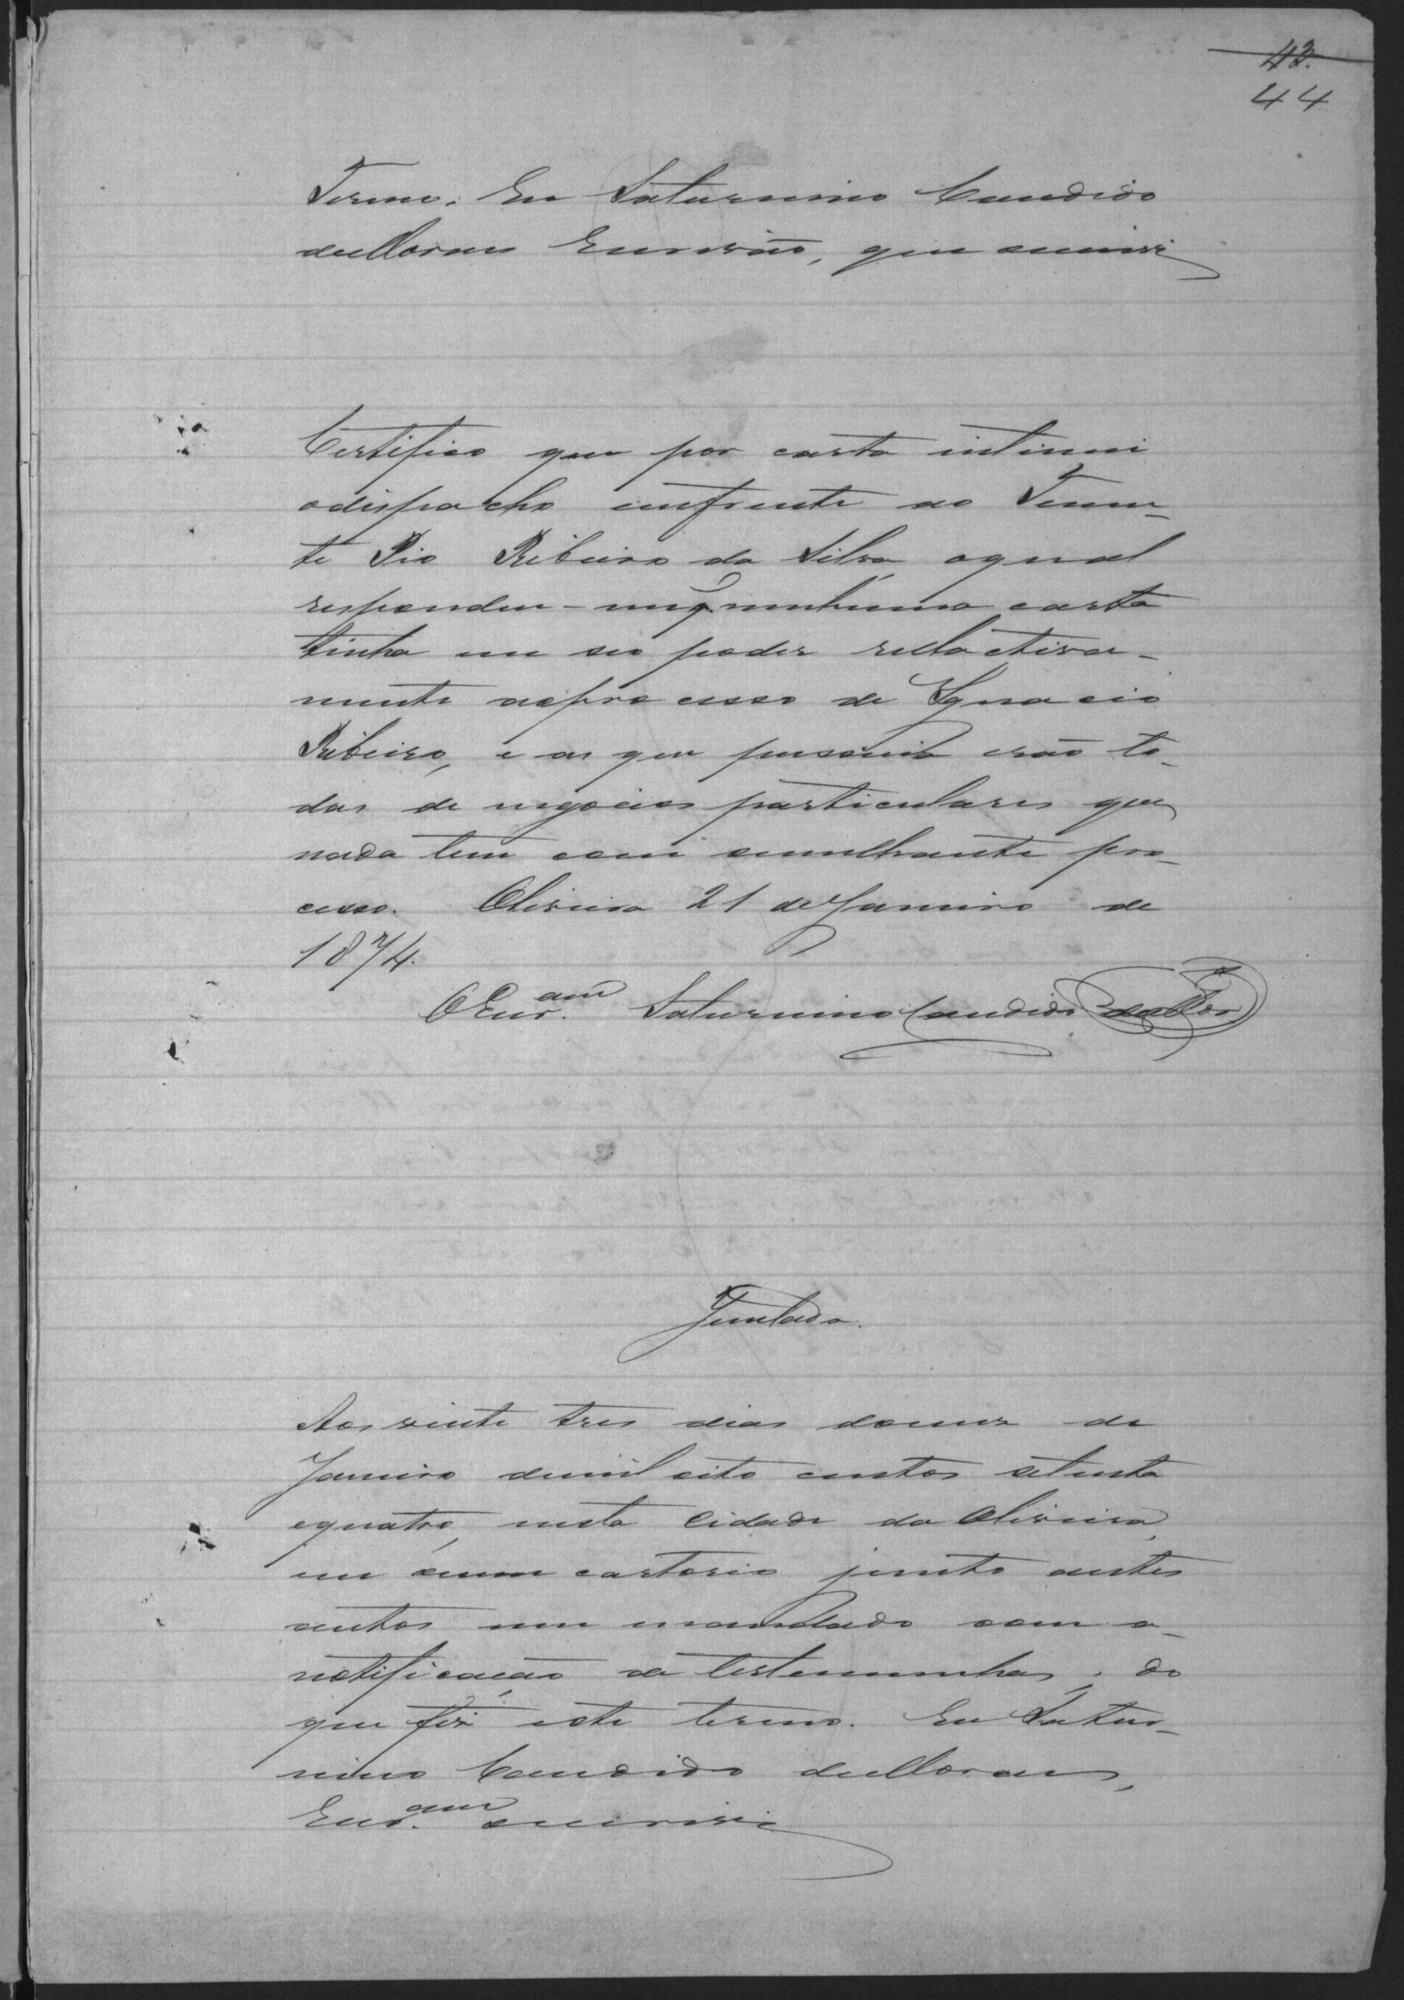 43.
44
Termo. Eu Saturnino Candido
de Moraes Escrivão, que escrevi
Certifico que por carta intimei
o dispacho emfrente ao Tenen-
te Pio Ribeiro da Silva, o qual
respondeu-me q. nenhuma carta
tinha em seo poder rellactiva-
mente ao processo de Ignacio
Ribeiro, e as que possuia erão to-
das de negocios particulares que
nada tem com semelhante pro-
cesso. Oliveira 21 de Janeiro de
1874.
O Escr.am Saturnino Candido de Mor
Juntada.
Aos vinte tres dias do mez de
Janeiro de mil oito centos setenta
e quatro, nesta Cidade da Oliveira,
em meu cartorio junto a estes
autos um mandado com a
notificação da testemunha, do
que fiz este termo. Eu Satur-
nino Candido de Moraes,
Escr.am escrevi